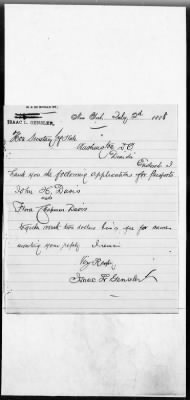 ISAAC L. GENSLER,
New York, July 2nd 1908
Hon Secretary of State
Washington, D.C.
Dear Sir
Enclosed I
hand you the following applications for Passports
John H. Davis
and
Flora Chapman Davis
together with two dollars being fee for same
awaiting your reply I remain
Very Respy
Isaac L Gensler